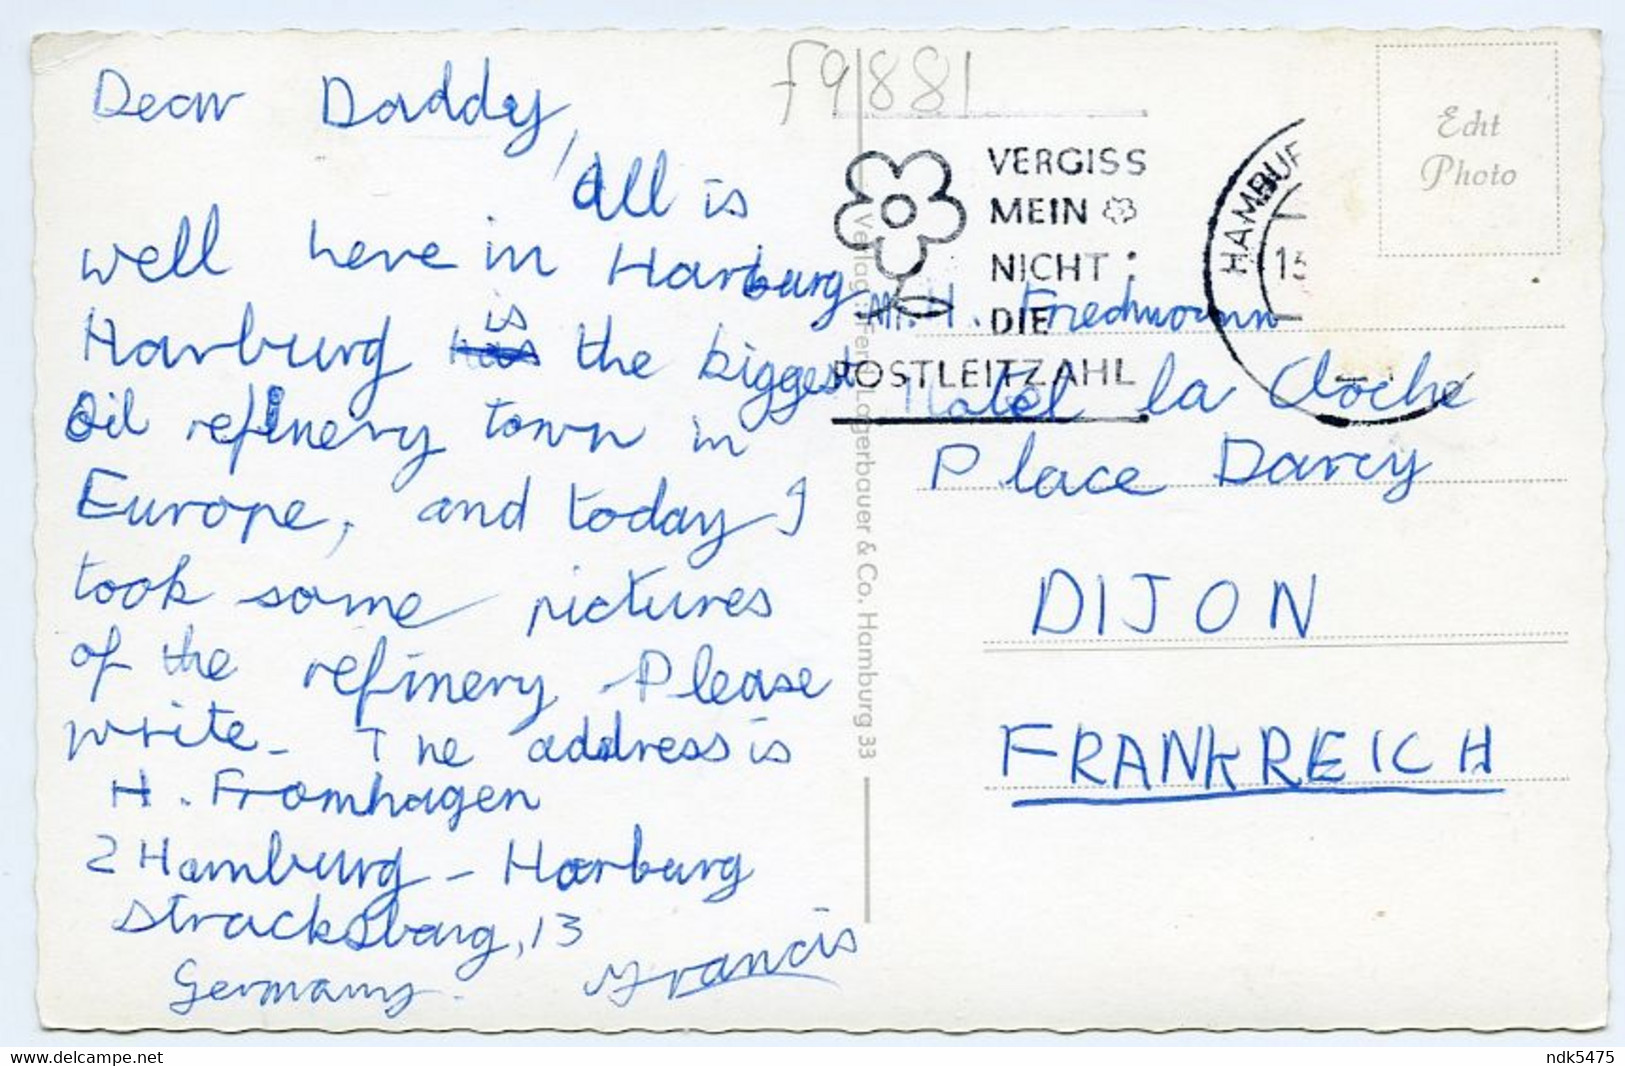 Dear Daddy,
All is
well here in Harburg
Harburg is the biggest
Oil refinery town in
Europe, and today I
took some pictures
of the refinery. Please
write. The address is
H. Fromhagen
2 Hamburg - Harburg
Stracksbarg, 13
Germany.
Francis
F9881
VERGISS
MEIN
NICHT:
DIE
POSTLEITZAHL
HAMBUR
13
Echt
Photo
Verlag: Ferd. Lagerbauer & Co. Hamburg 33
Mr. H. Friedmann
Hotel la Cloche
Place Darcy
DIJON
FRANKREICH
www.delcampe.net
ndk5475